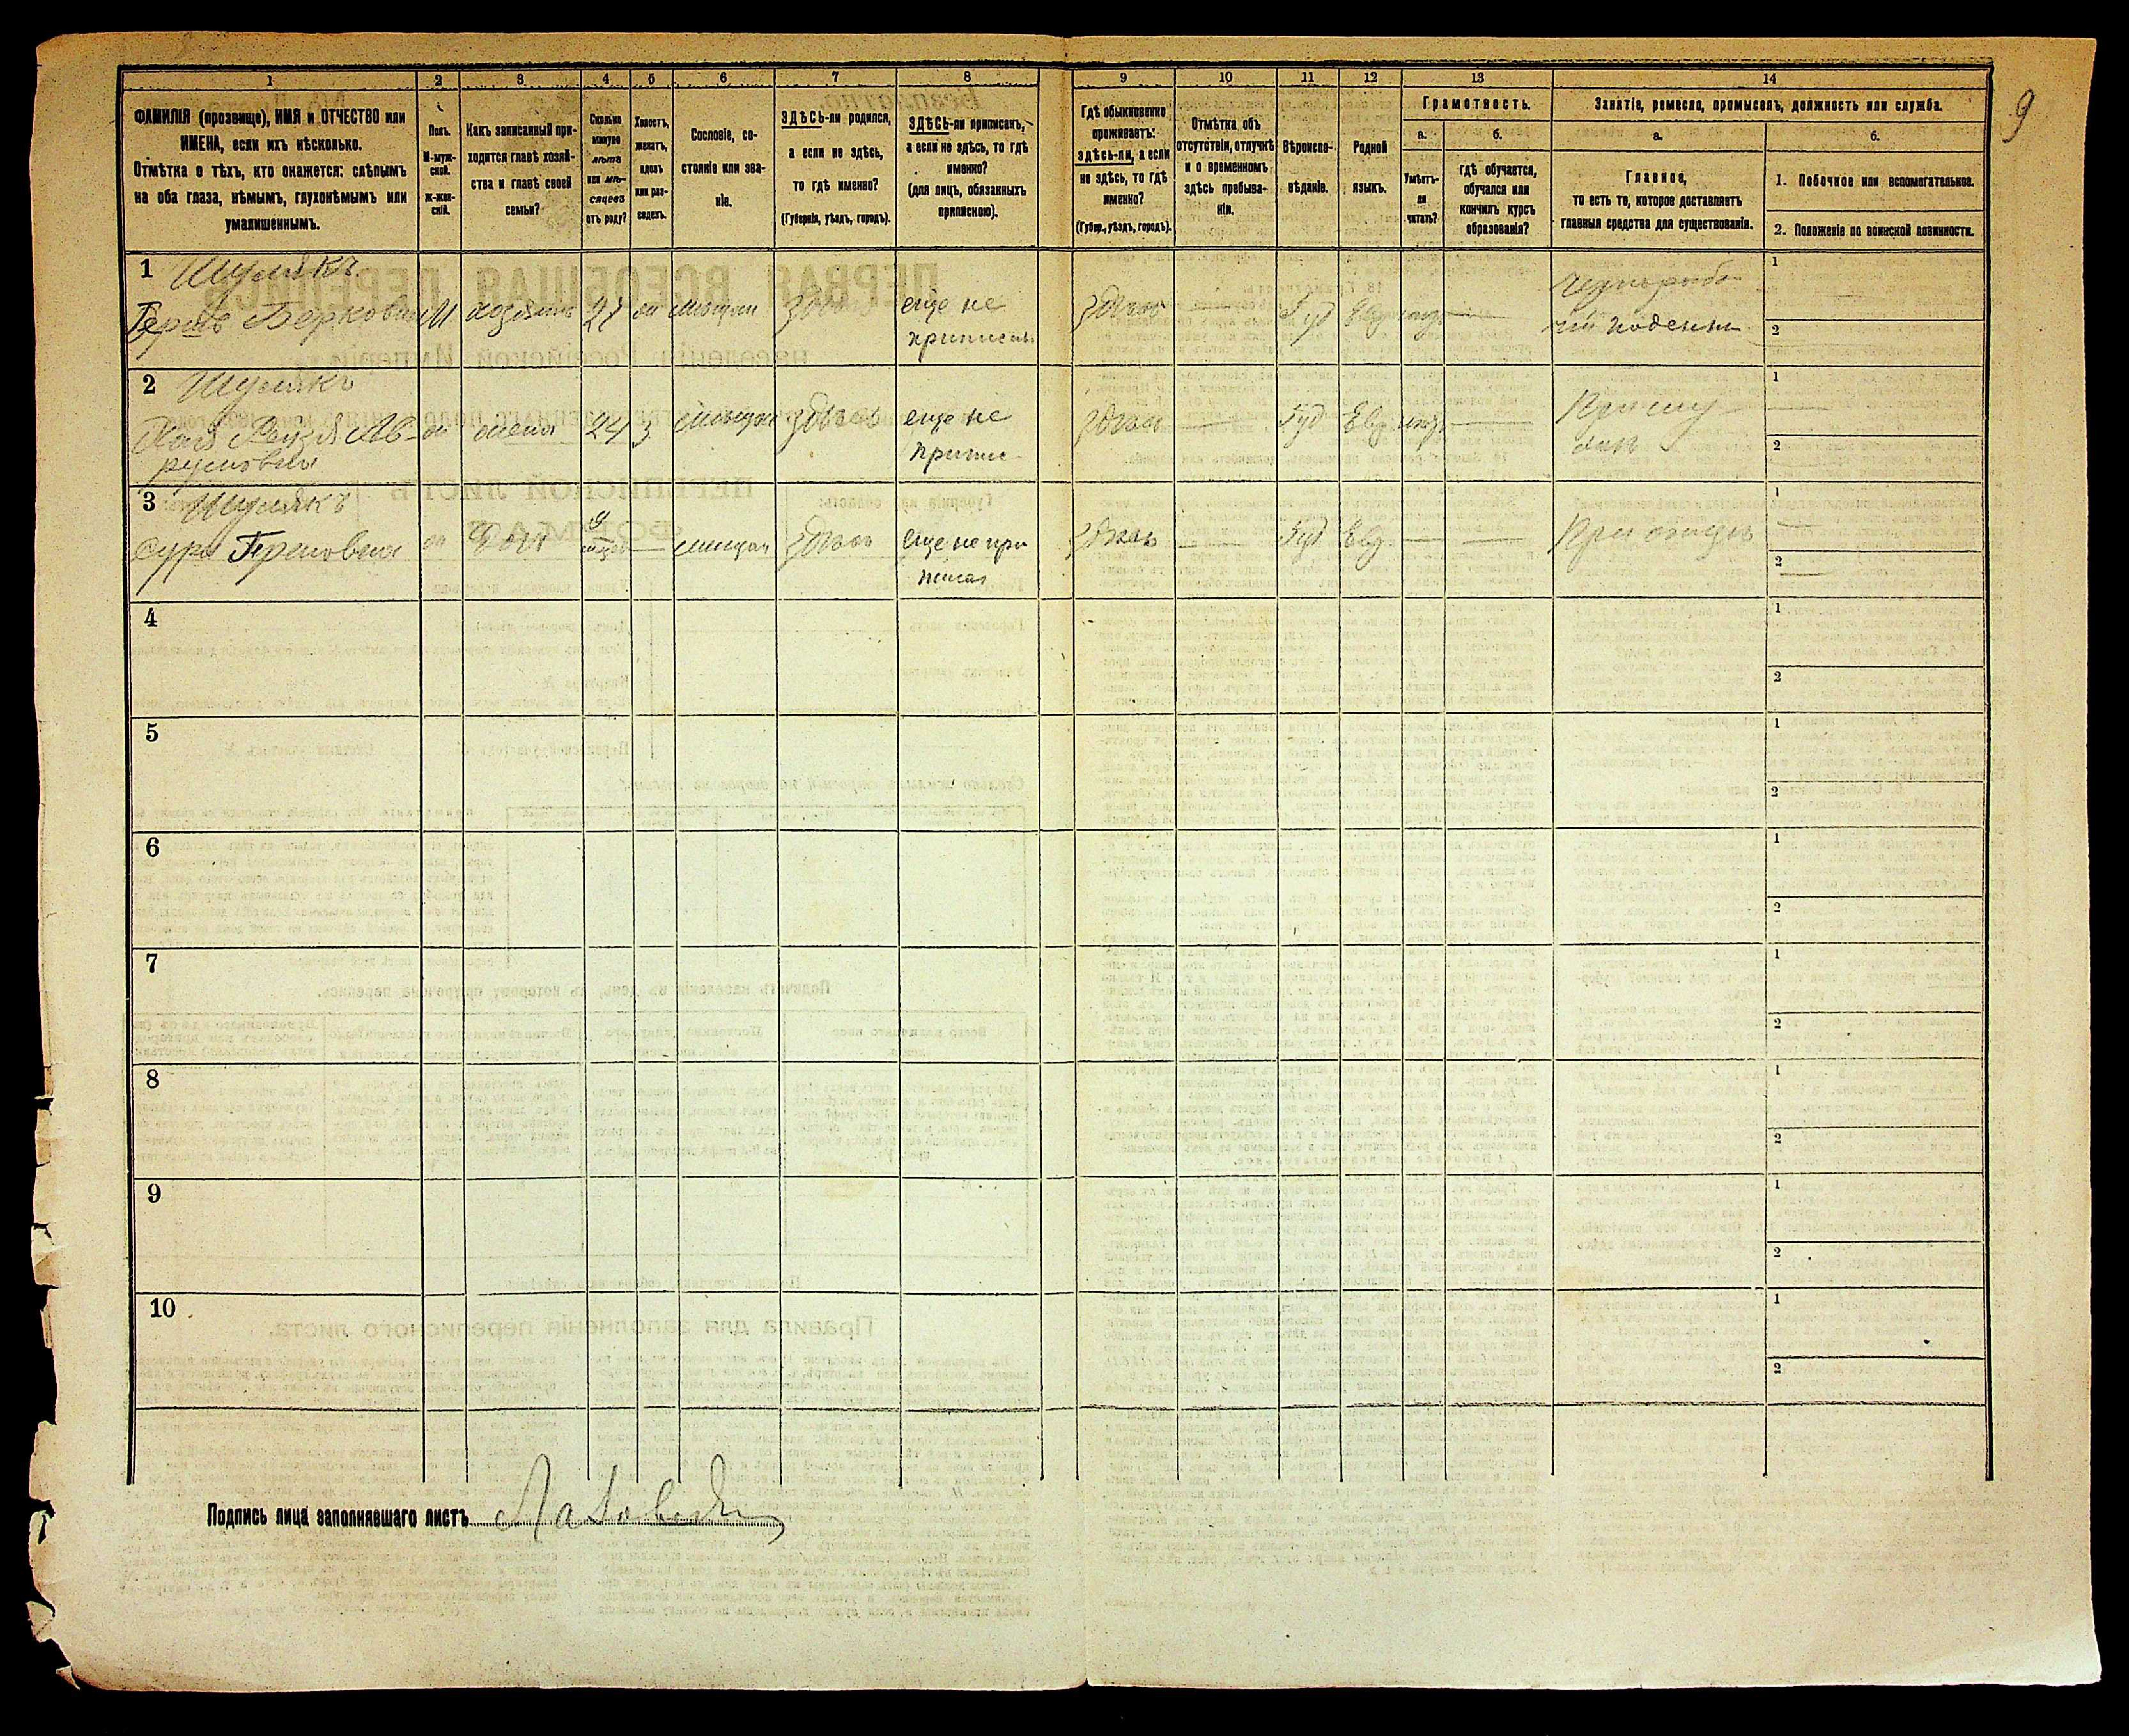 9
1 2 3 4 5 6 7 8 9 10 11 12 13 14
ФАМИЛІЯ (прозвище), ИМЯ и ОТЧЕСТВО или
ИМЕНА, если ихъ нѣсколько.
Отмѣтка о тѣхъ, кто окажется: слѣпымъ
на оба глаза, нѣмымъ, глухонѣмымъ или
умалишеннымъ.
Полъ.
М-муж-
ской.
ж-жен-
скій.
Какъ записанный при-
ходится главѣ хозяй-
ства и главѣ своей
семьи?
Сколько
минуло
лѣтъ
или мѣ-
сяцевъ
отъ роду?
Холостъ,
женатъ,
вдовъ
или раз-
веденъ.
Сословіе, со-
стояніе или зва-
ніе.
ЗДѢСЬ-ли родился,
а если не здѣсь,
то гдѣ именно?
(Губернія, уѣздъ, городъ).
ЗДѢСЬ-ли приписанъ,
а если не здѣсь, то гдѣ
именно?
(для лицъ, обязанныхъ
припискою).
Гдѣ обыкновенно
проживаетъ:
здѣсь-ли, а если
не здѣсь, то гдѣ
именно?
(Губер., уѣздъ, городъ).
Отмѣтка объ
отсутствіи, отлучкѣ
и о временномъ
здѣсь пребыва-
ніи.
Вѣроиспо-
вѣданіе.
Родной
языкъ.
Грамотность.
а.
Умѣетъ-
ли
читать?
б.
гдѣ обучается,
обучался или
кончилъ курсъ
образованія?
Занятіе, ремесло, промыселъ, должность или служба.
а.
Главное,
то есть то, которое доставляетъ
главныя средства для существованія.
б.
1. Побочное или вспомогательное.
2. Положеніе по воинской повинности.
1 Шулякъ
Гершъ Берковъ М хозяинъ 27 ж мѣщан здѣсь еще не
приписан
здѣсь — Іуд Евр —
чернорабо
чій поденн
1 —
2
2 Шулякъ
Хая Рейзя Ав-
румовна
ж жена 24 З мѣщан здѣсь еще не
припис
здѣсь — Іуд Евр —
При му
жѣ
1 —
2
3 Шулякъ
Сура Гершовна ж Дочь 9
мѣсяц
— мѣщан здѣсь еще не при
писан
здѣсь — Іуд Евр — — При отцѣ
1 —
2 —
4 1
2
5 1
2
6 1
2
7 1
2
8 1
2
9 1
2
10 1
2
Подпись лица заполнявшаго листъ